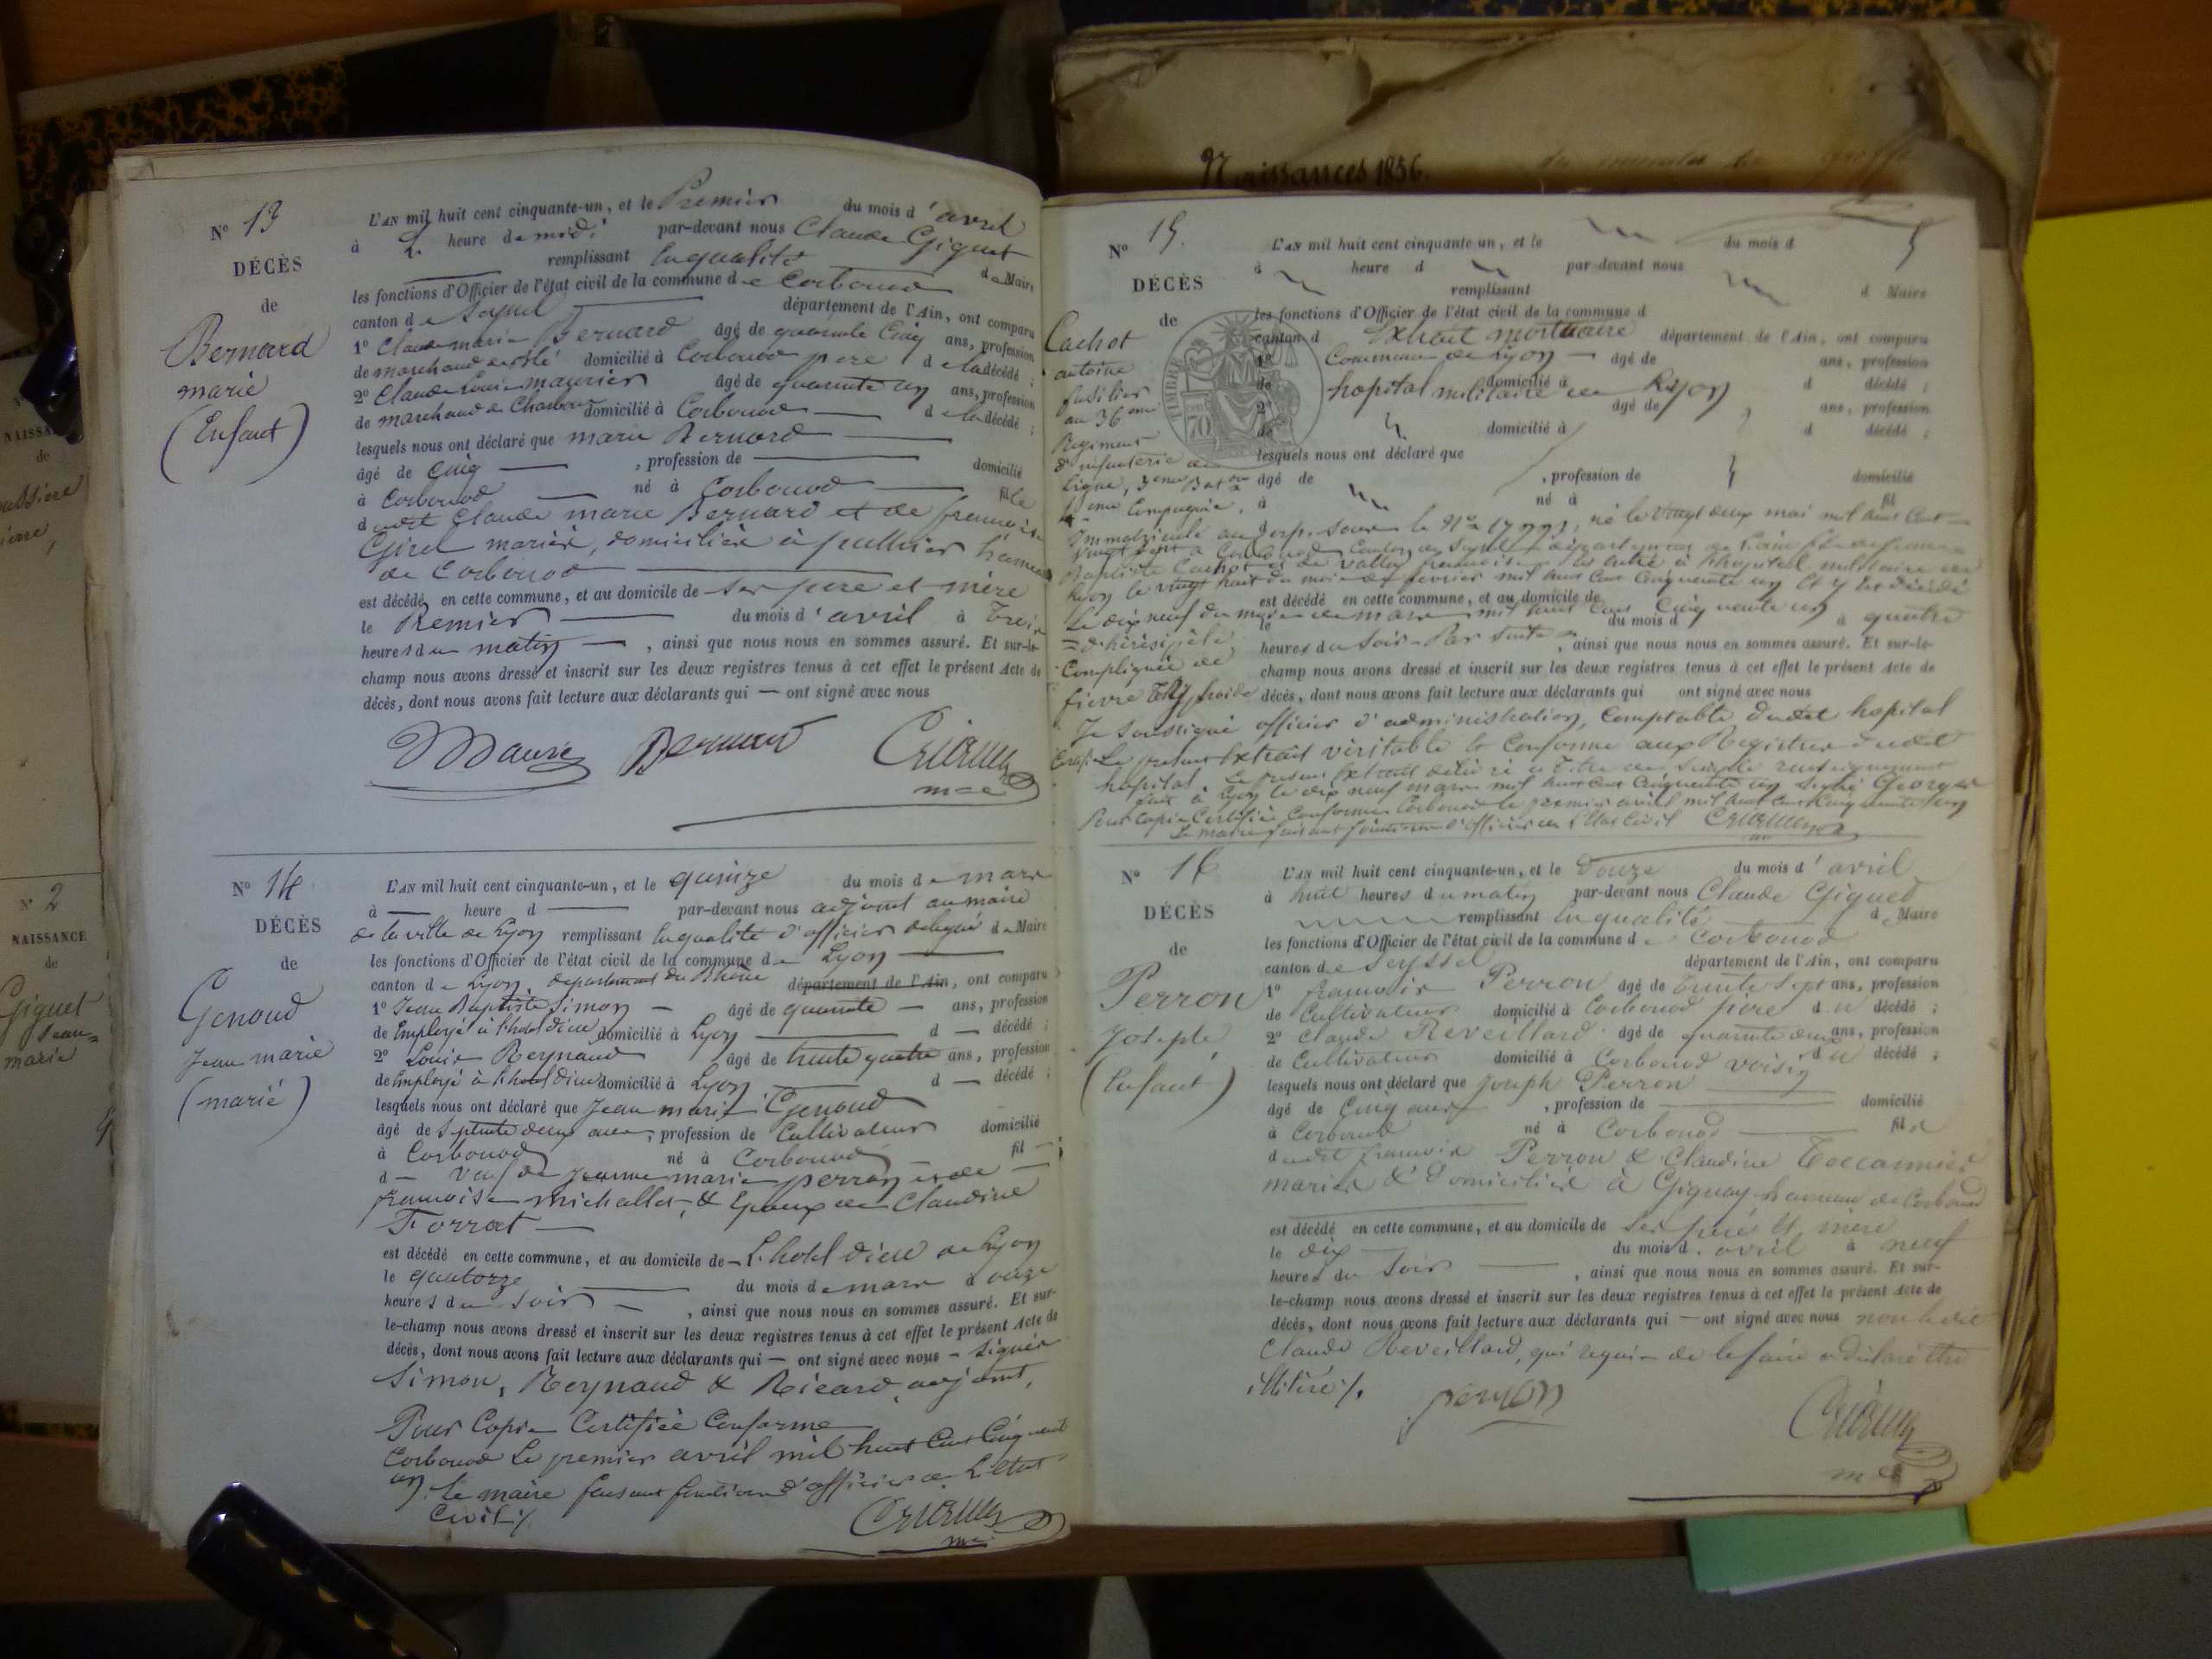 Naissances 1856.
NAISSANCE
de
N° 2
NAISSANCE
de
Giguet
Jean=
marie
N° 13
DÉCÈS
de
Bernard
marie
(Enfant)
L'AN mil huit cent cinquante-un, et le Premier du mois d'avril
à 2 heure de midi par-devant nous Claude Giguet
remplissant en qualité de Maire
les fonctions d'Officier de l'état civil de la commune de Corbonod
canton de Seyssel département de l'Ain, ont comparu
1° Claude marie Bernard âgé de quarante Cinq ans, profession
de marchand de blé domicilié à Corbonod pere de la décédé ;
2° Claude Louis maurier âgé de quarante un ans, profession
de marchand de Charbon domicilié à Corbonod de la décédé ;
lesquels nous ont déclaré que marie Bernard
âgé de Cinq , profession de domicilié
à Corbonod né à Corbonod fille
dudit Claude marie Bernard et de françoise
Girel mariés, domiciliés à hameau
de Corbonod
est décédé en cette commune, et au domicile de ses pere et mère
le Premier du mois d'avril à Trois
heures du matin , ainsi que nous nous en sommes assuré. Et sur-le-
champ nous avons dressé et inscrit sur les deux registres tenus à cet effet le présent Acte de
décès, dont nous avons fait lecture aux déclarants qui — ont signé avec nous
Bernard
N° 14
DÉCÈS
de
Genoud
Jean marie
(marié)
L'AN mil huit cent cinquante-un, et le quinze du mois de mars
à — heure d — par-devant nous adjoint au maire
de la ville de Lyon remplissant en qualité d'officier délégué de Maire
les fonctions d'Officier de l'état civil de la commune de Lyon
canton de Lyon, département du Rhône département de l'Ain, ont comparu
1° Jean Baptiste Simon — âgé de quarante — ans, profession
de Employé à l'hotel dieu domicilié à Lyon d — décédé ;
2° Louis Reynaud âgé de trente quatre ans, profession
de Employé à l'hotel dieu domicilié à Lyon d — décédé ;
lesquels nous ont déclaré que Jean marie Genoud
âgé de Septante deux ans, profession de Cultivateur domicilié
à Corbonod né à Corbonod fil —
d — Veuf de Jeanne marie perron et de —
françoise michallet, & Epoux de Claudine
Forrat —
est décédé en cette commune, et au domicile de — L'hotel dieu de Lyon
le quatorze du mois de mars à onze
heures du soir — , ainsi que nous nous en sommes assuré. Et sur-
le-champ nous avons dressé et inscrit sur les deux registres tenus à cet effet le présent Acte de
décès, dont nous avons fait lecture aux déclarants qui — ont signé avec nous - signés
Simon, Reynaud & Ricard, adjoint,
Pour Copie Certifiée Conforme
Corbonod Le premier avril mil huit Cent Cinquante
un. Le maire faisant fonctions d'officier de L'état
Civil
N° 15.
DÉCÈS
de
Cachot
antoine
fusilier
au 36 eme
Regiment
d'infanterie de
Ligne, 3eme Baton
1 eme Compagnie,
TIMBRE
70
L'AN mil huit cent cinquante-un, et le du mois d
à heure d par-devant nous
remplissant d Maire
les fonctions d'Officier de l'état civil de la commune d
canton d Extrait mortuaire département de l'Ain, ont comparu
1° Commune de Lyon — âgé de ans, profession
de hopital militaire de Lyon domicilié à d décédé ;
2° âgé de ans, profession
de domicilié à d décédé ;
lesquels nous ont déclaré que
âgé de , profession de domicilié
à né à fil
Immatriculé au Corps sous le N° , né le Vingt deux mai mil huit Cent
Vingt à Corbonod Canton de Seyssel département de l'ain fils de
Baptiste Cachot et de françoise est entré à l'hopital militaire de
Lyon le vingt huit du mois de fevrier mil huit Cent Cinquante un Et y Est décédé
est décédé en cette commune, et au domicile de
Le dix neuf du mois de mars mil huit Cent Cinquante un du mois d à quatre
heures du Soir - Par Suite , ainsi que nous nous en sommes assuré. Et sur-le-
= d'hérésipèle
Compliquée de champ nous avons dressé et inscrit sur les deux registres tenus à cet effet le présent Acte de
fievre Typhoide décès, dont nous avons fait lecture aux déclarants qui ont signé avec nous
Je Soussigné officier d'administration, Comptable dudit hopital
Certifie Le présent Extrait véritable Et Conforme aux Registres dudit
hopital. Le présent Extrait délivré à Titre de Simple renseignement
fait à Lyon le dix neuf mars mil huit Cent Cinquante un signé Georges
Pour Copie Certifiée Conforme Corbonod le premier avril mil huit Cent Cinquante un
Le maire faisant fonctions d'officier de L'état Civil
N° 16
DÉCÈS
de
Perron
Joseph
(Enfant)
L'AN mil huit cent cinquante-un, et le Douze du mois d'avril
à huit heures du matin par-devant nous Claude Giguet
remplissant en qualité de Maire
les fonctions d'Officier de l'état civil de la commune de Corbonod
canton de Seyssel département de l'Ain, ont comparu
1° françois Perron âgé de trente sept ans, profession
de Cultivateur domicilié à Corbonod père du décédé ;
2° Claude Reveillard âgé de quarante deux ans, profession
de Cultivateur domicilié à Corbonod voisin du décédé ;
lesquels nous ont déclaré que Joseph Perron
âgé de Cinq ans , profession de domicilié
à Corbonod né à Corbonod fils
dudit françois Perron & Claudine
mariés & Domiciliés à Gignay hameau de Corbonod
est décédé en cette commune, et au domicile de ses père et mère
le dix du mois d'avril à neuf
heures du Soir , ainsi que nous nous en sommes assuré. Et sur-
le-champ nous avons dressé et inscrit sur les deux registres tenus à cet effet le présent Acte de
décès, dont nous avons fait lecture aux déclarants qui — ont signé avec nous non ledit
Claude Reveillard, qui requis de le faire a déclaré être
illitéré
perron